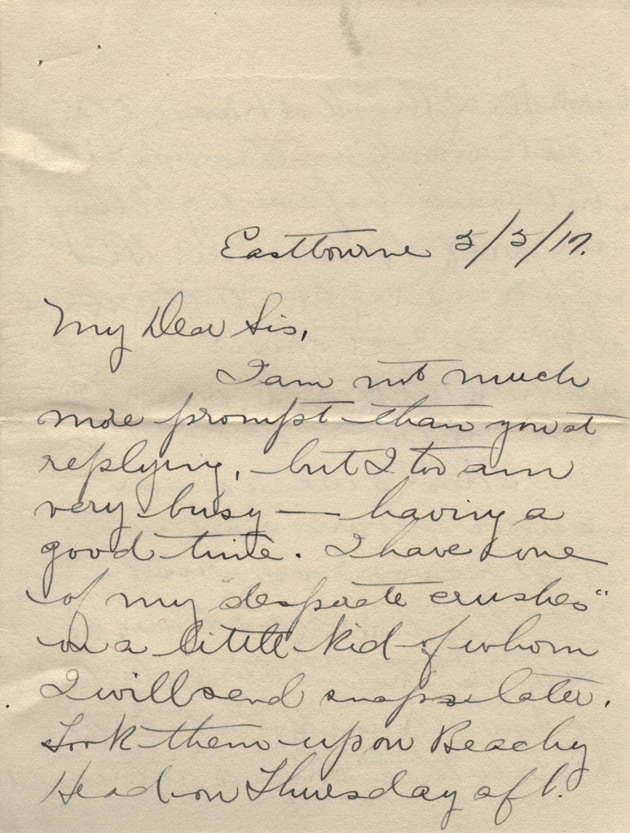 Eastbourne 5/5/17.
My Dear Sis,
I am not much
more prompt than you at
replying, but I too am
very busy — having a
good time. I have one
of my "desperate crushes"
on a little kid of whom
I will send snaps later.
Took them up on Beachy
Head on Thursday aft.